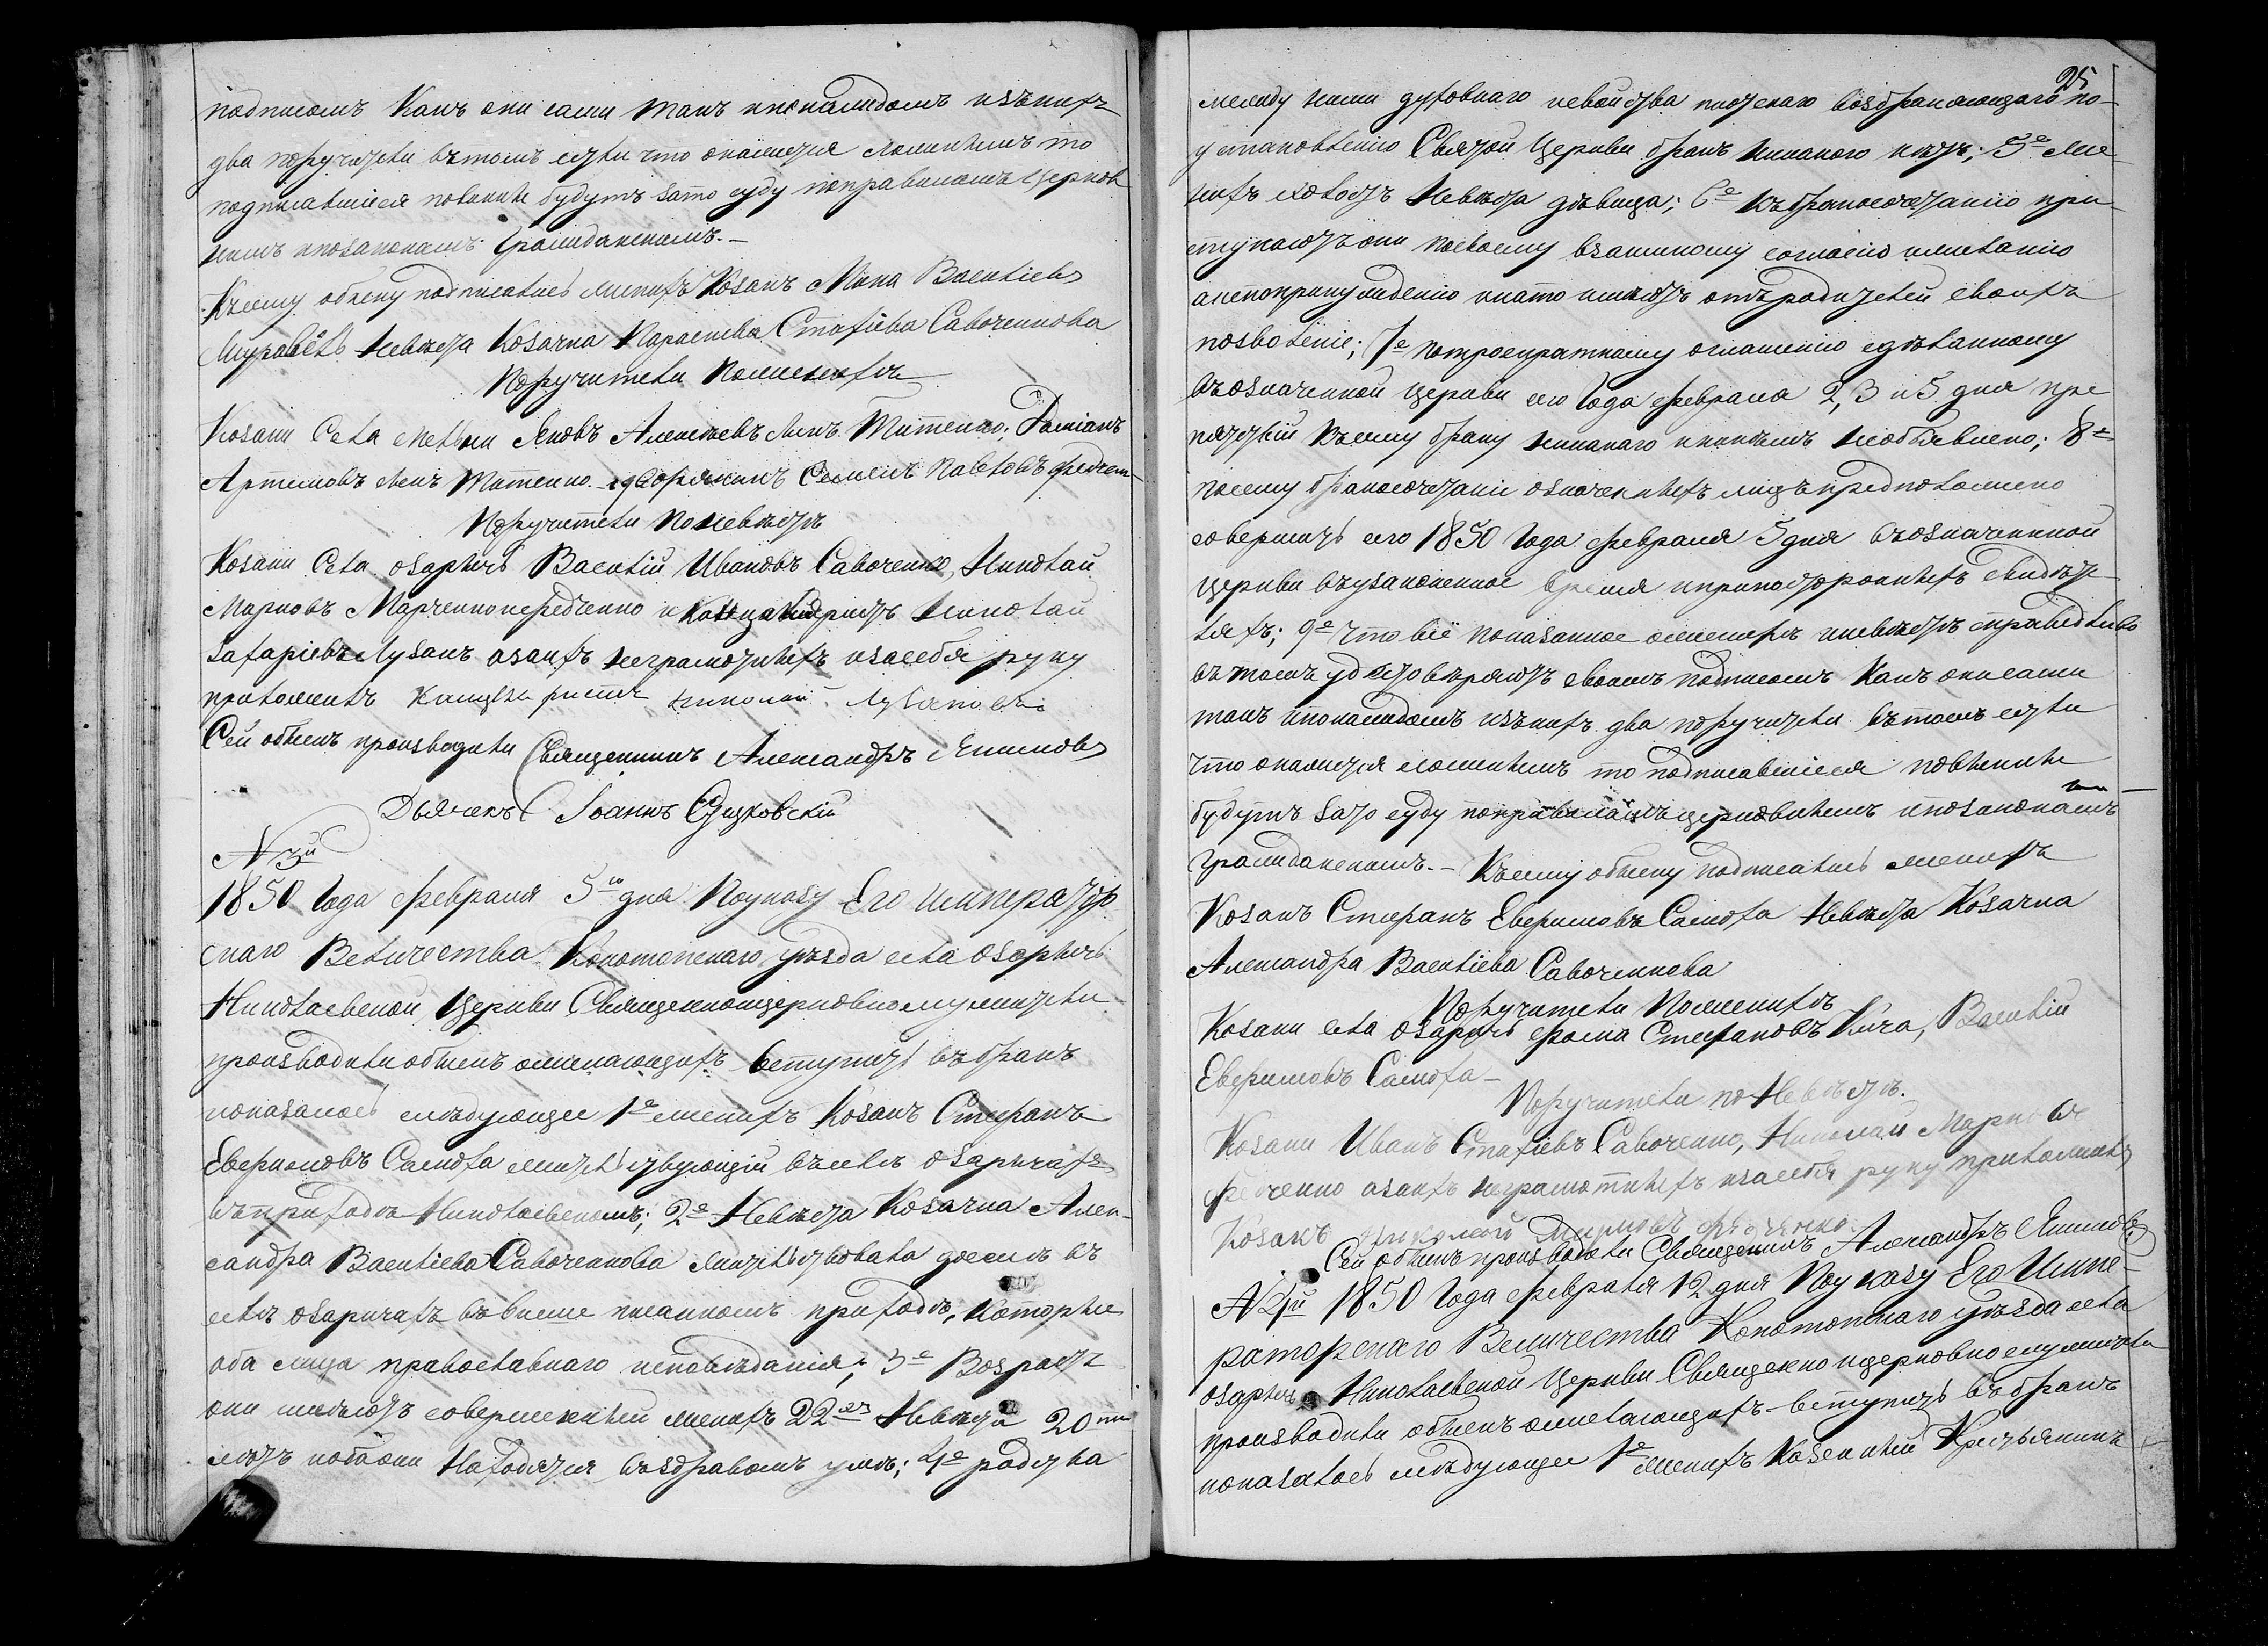 подписомъ Какъ они сами такъ и покаждомъ изънихъ
два поручители вътомъ если что окажется ложнымъ то
подписавшіеся повинны будутъ зато суду поправиламъ Церков
нымъ и позаконамъ Гражданскимъ.-
Къему обыску подписались женихъ Козакъ Мина Васильевъ
Журавель Невѣста Козачка Параскева Стафіева Савоченкова
Поручители Поженихѣ
Козаки Села Яковъ Алексѣевъ Титенко, Даміанъ
Артемовъ Титенко дворянинъ Семенъ Павловъ Федчен-
Поручители Поневѣстѣ
Козаки Села Озаричъ Василій Ивановъ Савоченко, Николай
Марковъ Марченко и Канцеляристъ Николай
Захаріевъ Лузанъ азаихъ неграмотныхъ изасебя руку
приложилъ Канцеляристъ Николай Лузановъ
Сей обыскъ производили Священникъ Александръ Якимовъ
Дьячекъ Іоаннъ
N 3й
1850 Года февраля 5го дня Поуказу Его Император
скаго Величества Конотопскаго уѣзда села Озаричъ
Николаевской Церкви Священноицерковнослужители
производили обыскъ ожелающихъ вступить въ бракъ
показалось слѣдующее 1е женихъ Козакъ Стефанъ
Евфимовъ Самоха жительствующій въселѣ Озаричахъ
въприходѣ Николаевскомъ; 2е Невѣста Козачка Алек-
сандра Васильева Савоченкова жительствовала досель въ
селѣ Озаричахъ въвыше писанномъ приходѣ, которые
оба лица православнаго исповѣданія; 3е Возрастъ
они имѣютъ совершенный женихъ 22 хъ Невѣста 20ти
лѣтъ и оба они Находятся въздравомъ умѣ; 4е родства
25
между ними духовнаго исвойства плотскаго возбраняющаго по-
установленію Святой Церкви бракъ никакого нѣтъ; 5е Же
нихъ холостъ Невѣста дѣвица; 6е къбракосочетанію при
ступаютъ они посвоему взаимному согласію ижеланію
анепопринужденію инато имѣютъ отъродителей своихъ
позволеніе; 7е потроекратному оглашенію сдѣланному
въозначенной церкви сего Года февраля 2, 3 и 5 дня пре
пятствій Къему браку никакаго никѣмъ необъявлено; 8е
посему бракосочетаніе означенныхъ лицъ предположено
совершить сего 1850 Года февраля 5 дня въозначенной
церкви въузаконенное время иприпостороннихъ свидѣте-
ляхъ; 9е Что всё показанное оженихѣ иневѣстѣ справедливо
вътомъ удостовѣряютъ своимъ подписомъ Какъ они сами
такъ ипокаждомъ изънихъ два поручители вътомъ если
что окажется ложнымъ то подписавшіеся повинны
будутъ зато суду поправиламъ церковнымъ ипозаконамъ
Гражданскимъ.- Къему обыску подписались женихъ
Козакъ Стефанъ Евфимовъ Самоха Невѣста Козачка
Александра Васильева Савоченкова
Поручители Поженихѣ
Козаки села Озаричъ Фома Стефановъ Кича, Василій
Евфимовъ Самоха-
Поручители по Невѣстѣ.
Козаки Иванъ Стафіевъ Савоченко, Николай Марковъ
Федченко азаихъ неграмотныхъ изасебя руку приложилъ
Козакъ Николай
Сей обыскъ производили Священникъ Александръ Якимовъ
N 4й 1850 Года февраля 12 дня Поуказу Его Импе-
раторскаго Величества Конотопскаго уѣзда села
Озаричъ Николаевской Церкви Священно ицерковнослужители
производили обыскъ ожелающихъ вступить въ бракъ
показалось слѣдующее 1е женихъ Казенный Крестьянинъ